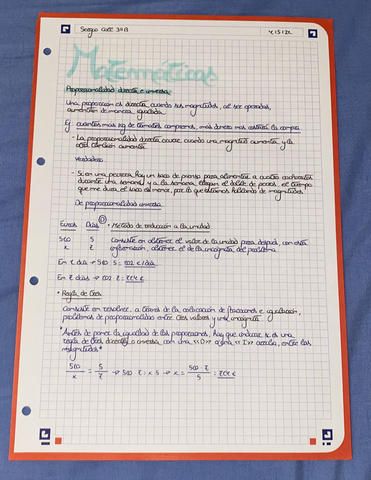 Sergio 3ºB
4/5/21
Matemáticas
Proporcionalidad directa e inversa
Una proporción es directa cuando sus magnitudes, al ser operadas,
aumentan de manera igualada.
Ej: cuantos más kg de tomates compremos, más dinero nos costará la compra
- La proporcionalidad directa ocurre cuando una magnitud aumenta y la
otra también aumenta
Verdadero
- Si en una perrera hay un saco de pienso para alimentar a cuatro cachorros
durante una semana y a la semana llegan el doble de perros, el tiempo
que me dura el saco es menor, por lo que estamos hablando de magnitudes
De proporcionalidad inversa
Euros Días D • Método de reducción a la unidad
510 5 Consiste en obtener el valor de la unidad para después, con esta
x 2 información, obtener el de la incógnita del problema
En 1 día → 510 : 5 = 102 €/día
En 2 días → 102 · 2 = 204 €
• Regla de tres
Consiste en resolver, a través de la colocación de fracciones e igualación,
problemas de proporcionalidad entre tres valores y una incógnita
*Antes de poner la igualdad de las proporciones, hay que indicar si es una
regla de tres directa o inversa con una <<D>> o una <<I>> arriba, entre las
magnitudes*
510/x = 5/2 → 510 · 2 = x · 5 → x = 510 · 2/5 = 204 €